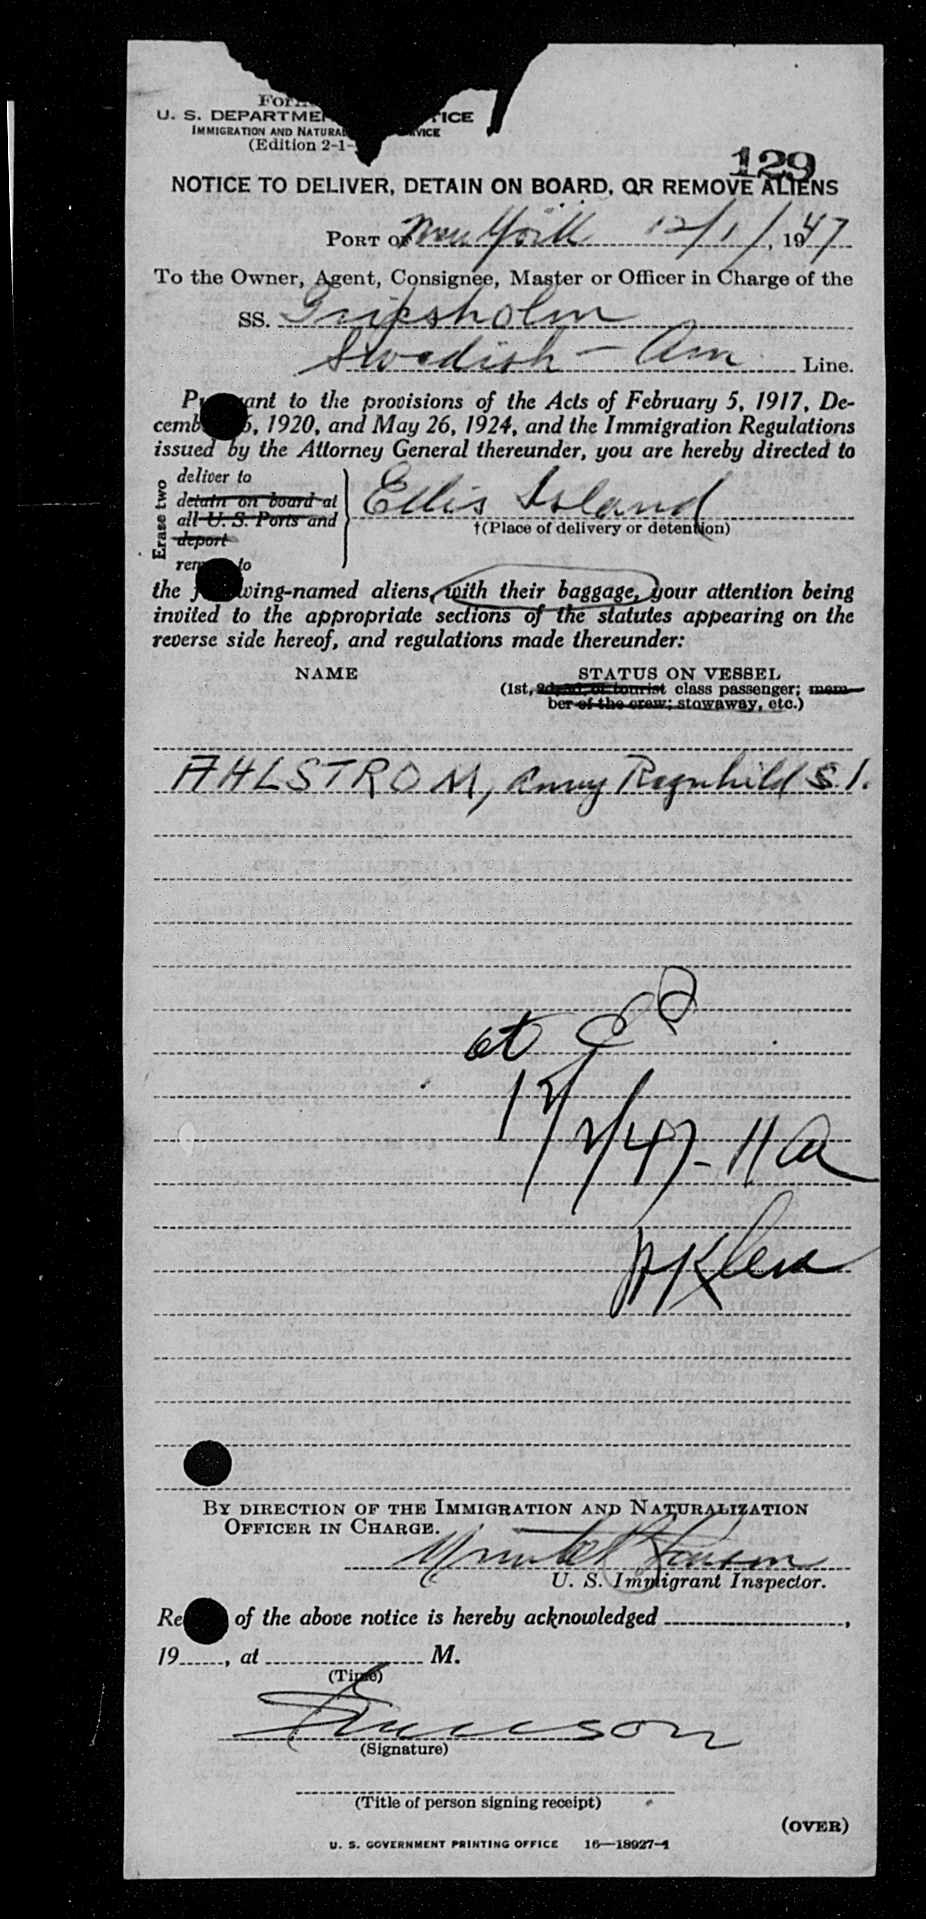 U. S. DEPARTME TICE
IMMIGRATION AND NATURAL VICE
(Edition 2-1-
129
NOTICE TO DELIVER, DETAIN ON BOARD, OR REMOVE ALIENS
PORT OF New York 12/1/, 1947
To the Owner, Agent, Consignee, Master or Officer in Charge of the
SS. Gripsholm
Swedish - Am Line.
P ant to the provisions of the Acts of February 5, 1917, De-
cemb 6, 1920, and May 26, 1924, and the Immigration Regulations
issued by the Attorney General thereunder, you are hereby directed to
Erase two
deliver to
detain on board at
all U. S. Ports and
deport
rem to
Ellis Island
†(Place of delivery or detention)
the f wing-named aliens, with their baggage, your attention being
invited to the appropriate sections of the statutes appearing on the
reverse side hereof, and regulations made thereunder:
NAME STATUS ON VESSEL
(1st, 2d, 3d, or tourist class passenger; mem-
ber of the crew; stowaway, etc.)
AHLSTROM, Anny Ragnhild S. I.
at
12/2/47 - 11 a
BY DIRECTION OF THE IMMIGRATION AND NATURALIZATION
OFFICER IN CHARGE.
U. S. Immigrant Inspector.
Re of the above notice is hereby acknowledged ,
19 , at M.
(Time)
(Signature)
(Title of person signing receipt)
(OVER)
U. S. GOVERNMENT PRINTING OFFICE 16—18927-1